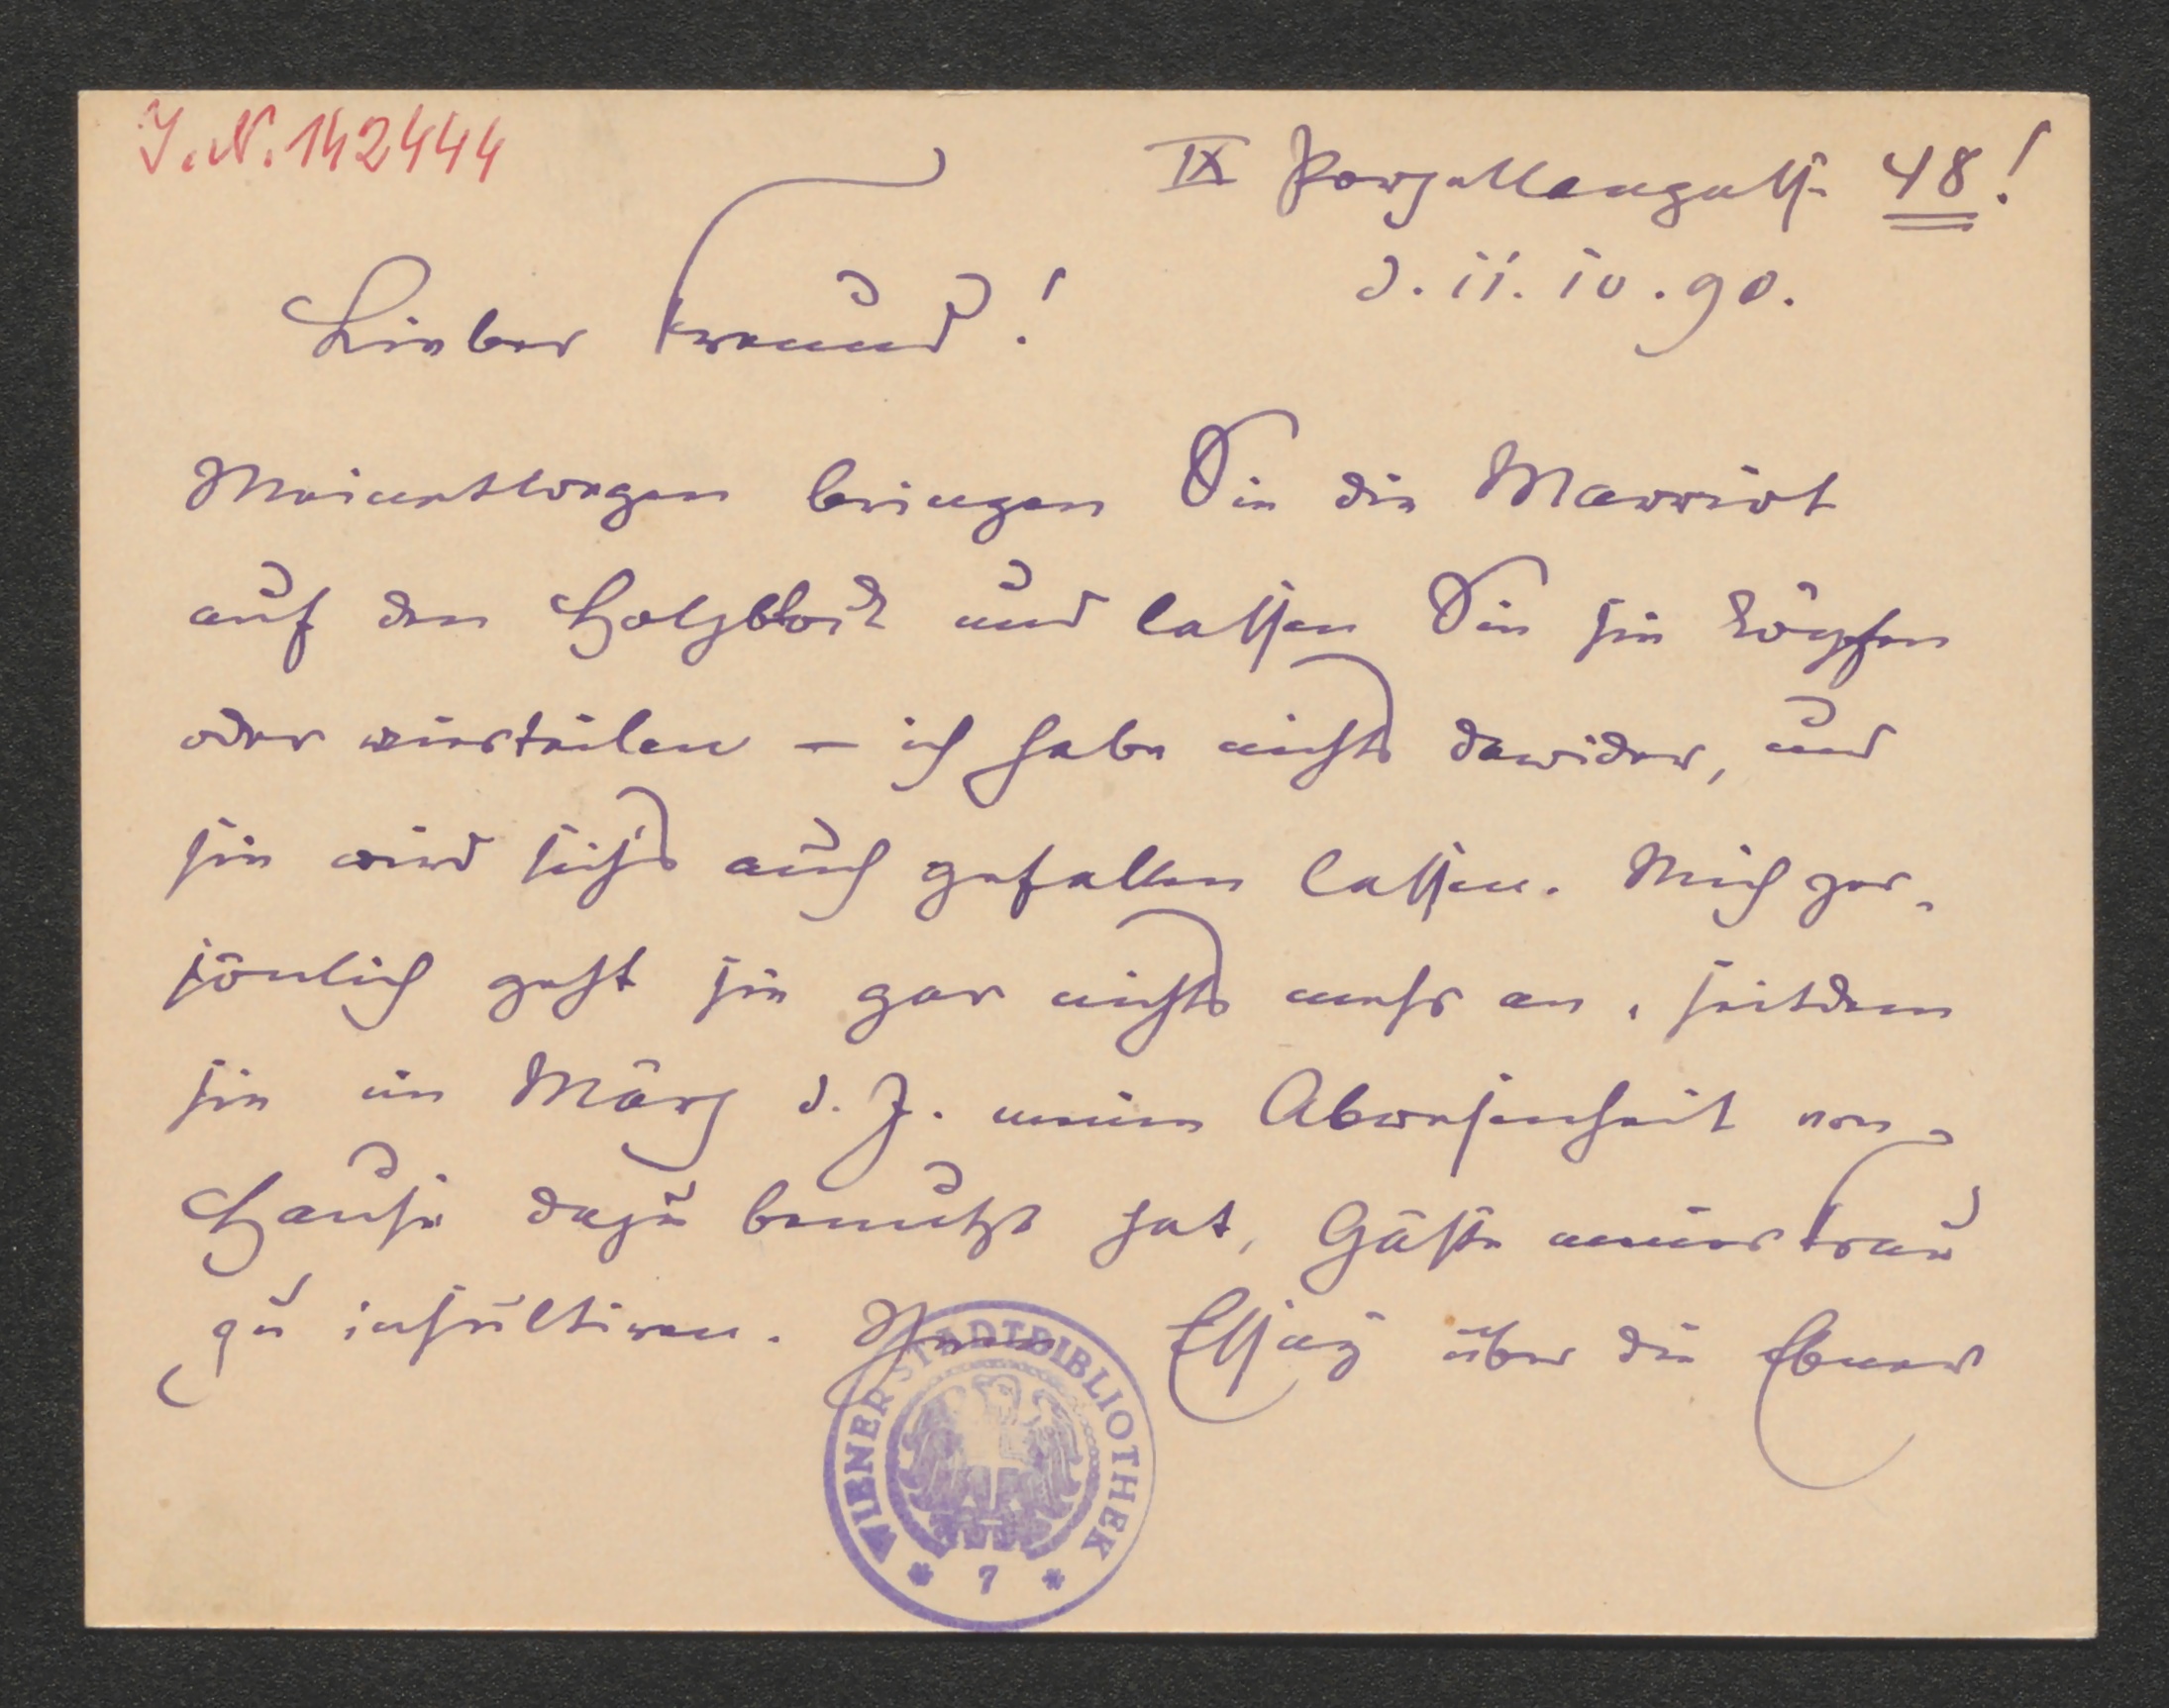 J.N. 142444
IX Porzellangasse 48!
d. 11. 10. 90.
Lieber Freund!
Meinetwegen bringen Sie die Marriot
auf den Holzblock und lassen Sie sie köpfen
oder vierteilen – ich habe nichts dawider, und
sie wird sich's auch gefallen lassen. Mich per-
sönlich geht sie gar nichts mehr an, seitdem
sie im März d. J. meine Abwesenheit von
Hause dazu benutzt hat, Gäste meiner Frau
zu insultiren. Ihren Essay über die Ebner
WIENER STADTBIBLIOTHEK
* 7 *